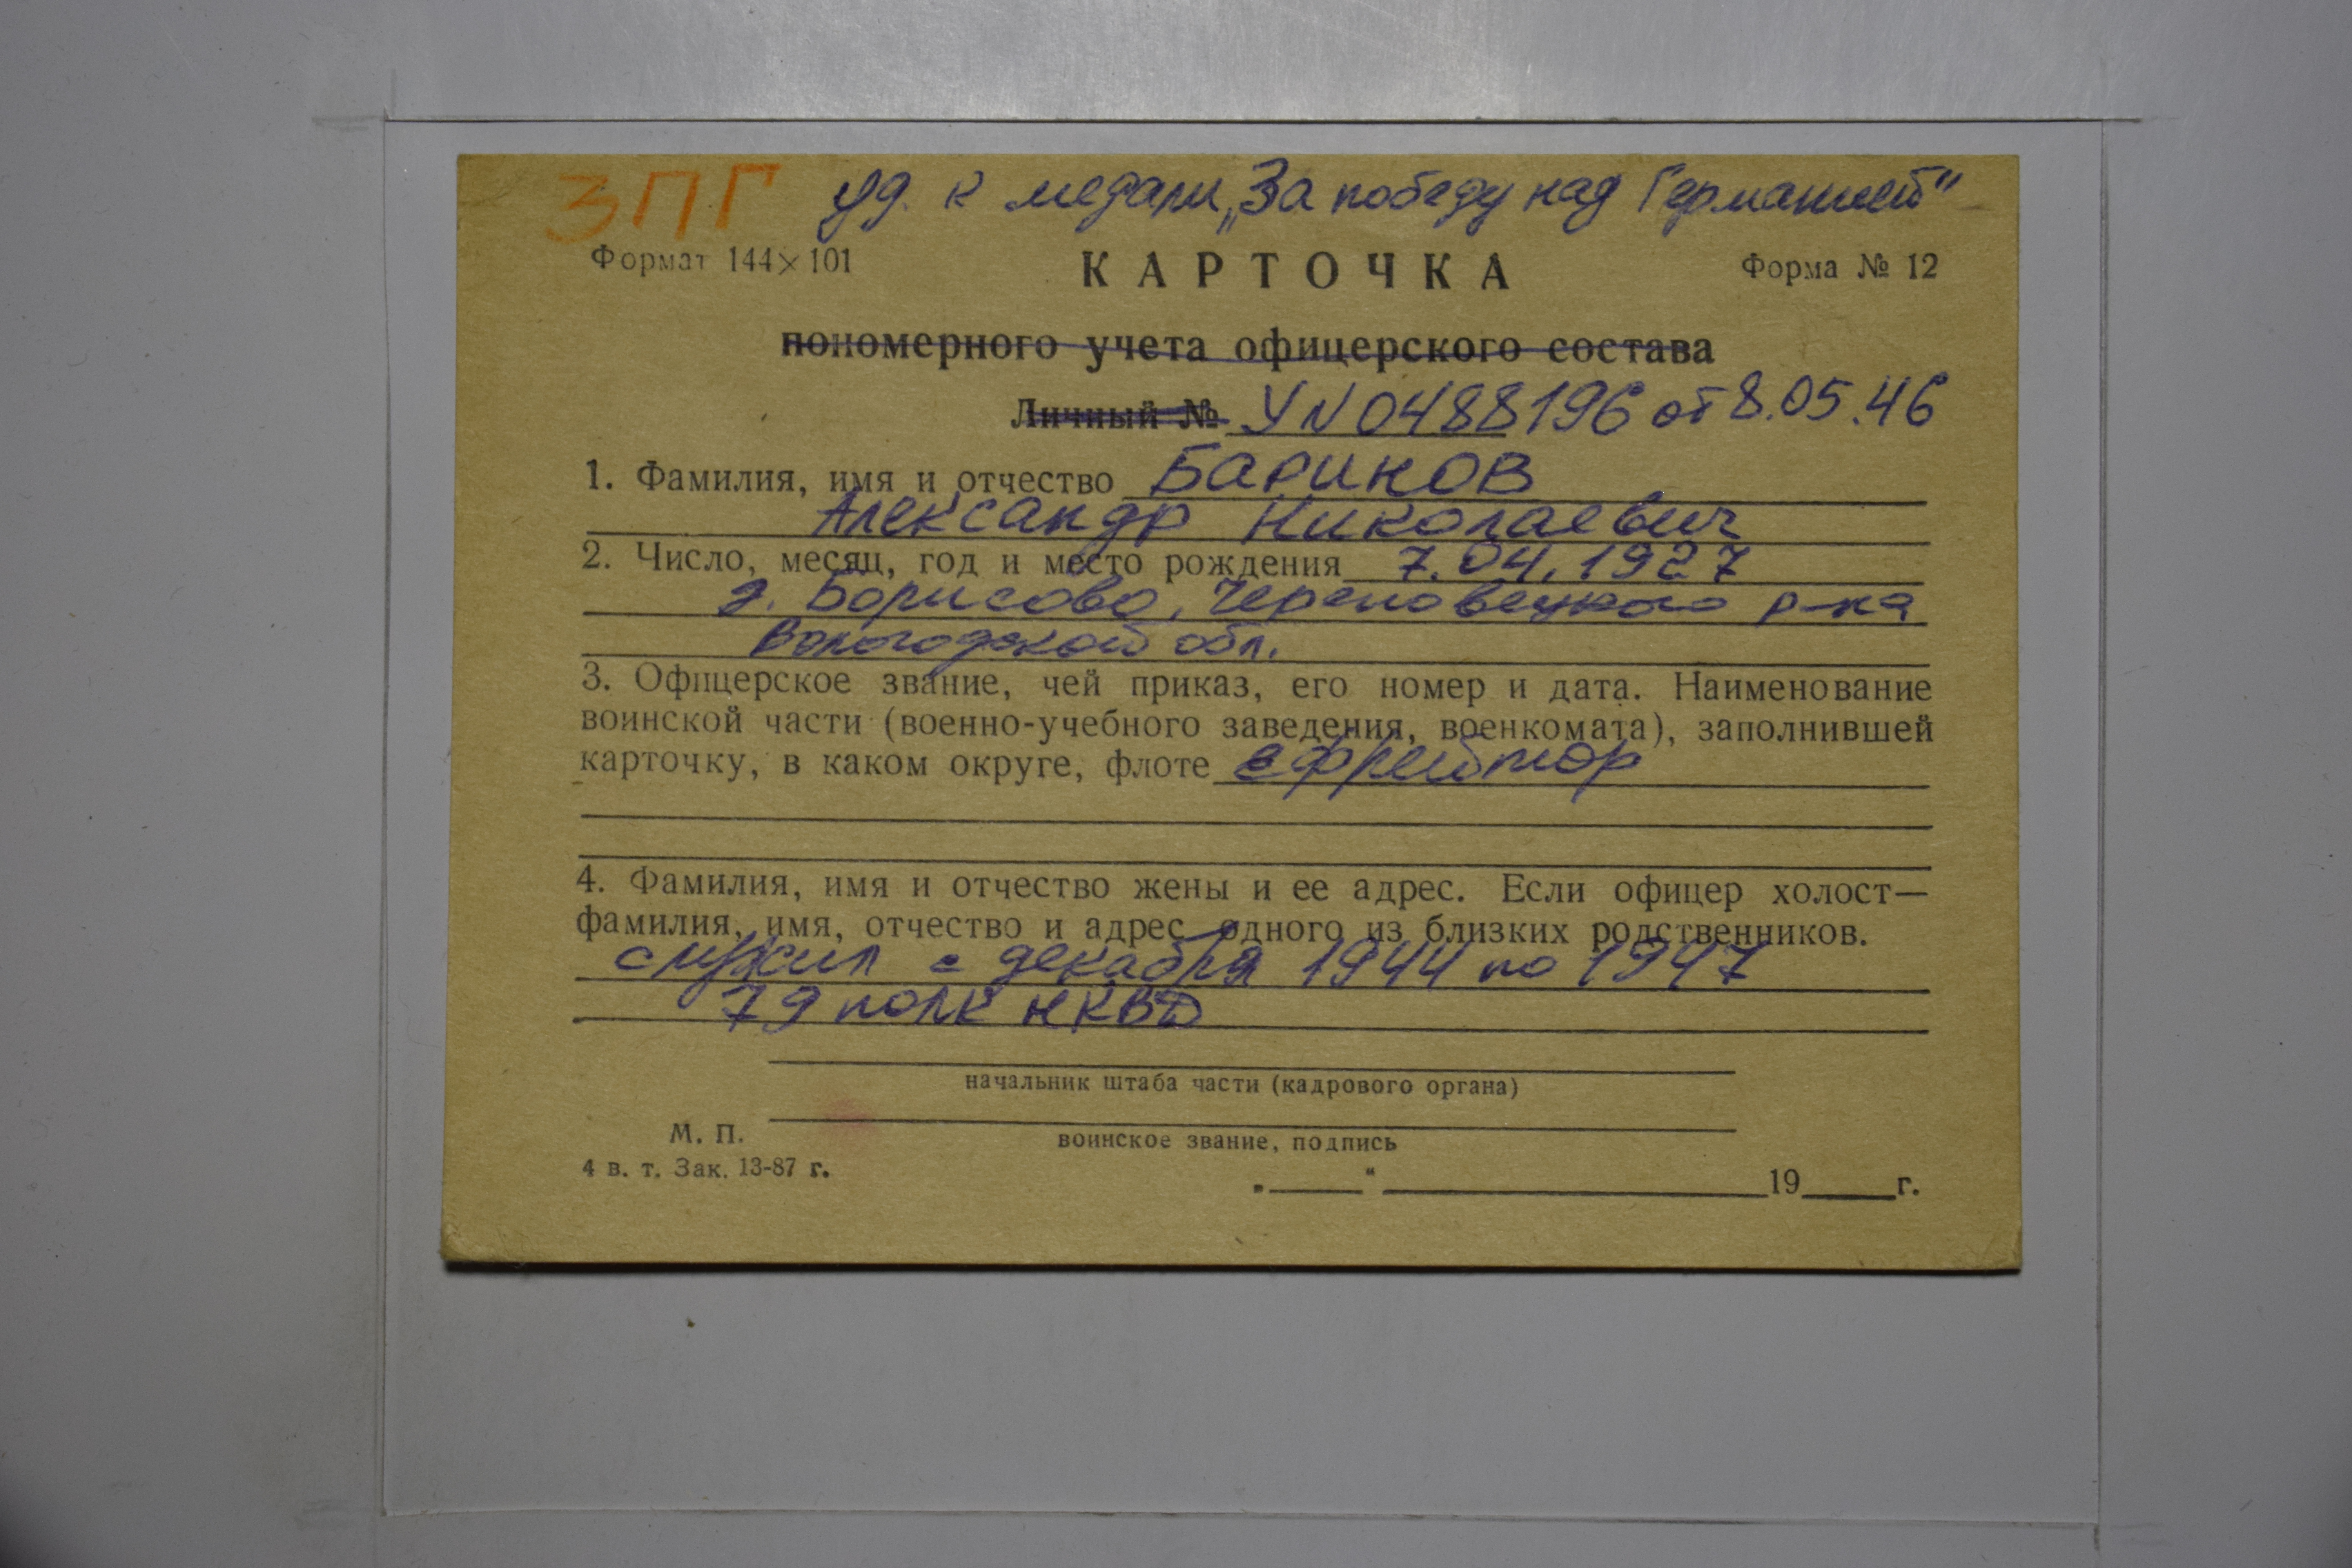 ЗПГ уд. к медали „За победу над Германией"
Формат 144×101
КАРТОЧКА
Форма № 12
пономерного учета офицерского состава
Личный № У N 0488196 от 8.05.46
1. Фамилия, имя и отчество Баринов
Александр Николаевич
2. Число, месяц, год и место рождения 7.04.1927
д. Борисово, Череповецкого р-на
Вологодской обл.
3. Офицерское звание, чей приказ, его номер и дата. Наименование
воинской части (военно-учебного заведения, военкомата), заполнившей
карточку, в каком округе, флоте ефрейтор
4. Фамилия, имя и отчество жены и ее адрес. Если офицер холост—
фамилия, имя, отчество и адрес одного из близких родственников.
служил с декабря 1944 по 1947
79 полк НКВД
начальник штаба части (кадрового органа)
М. П.
воинское звание, подпись
4 в. т. Зак. 13-87 г.
„ “ 19 г.